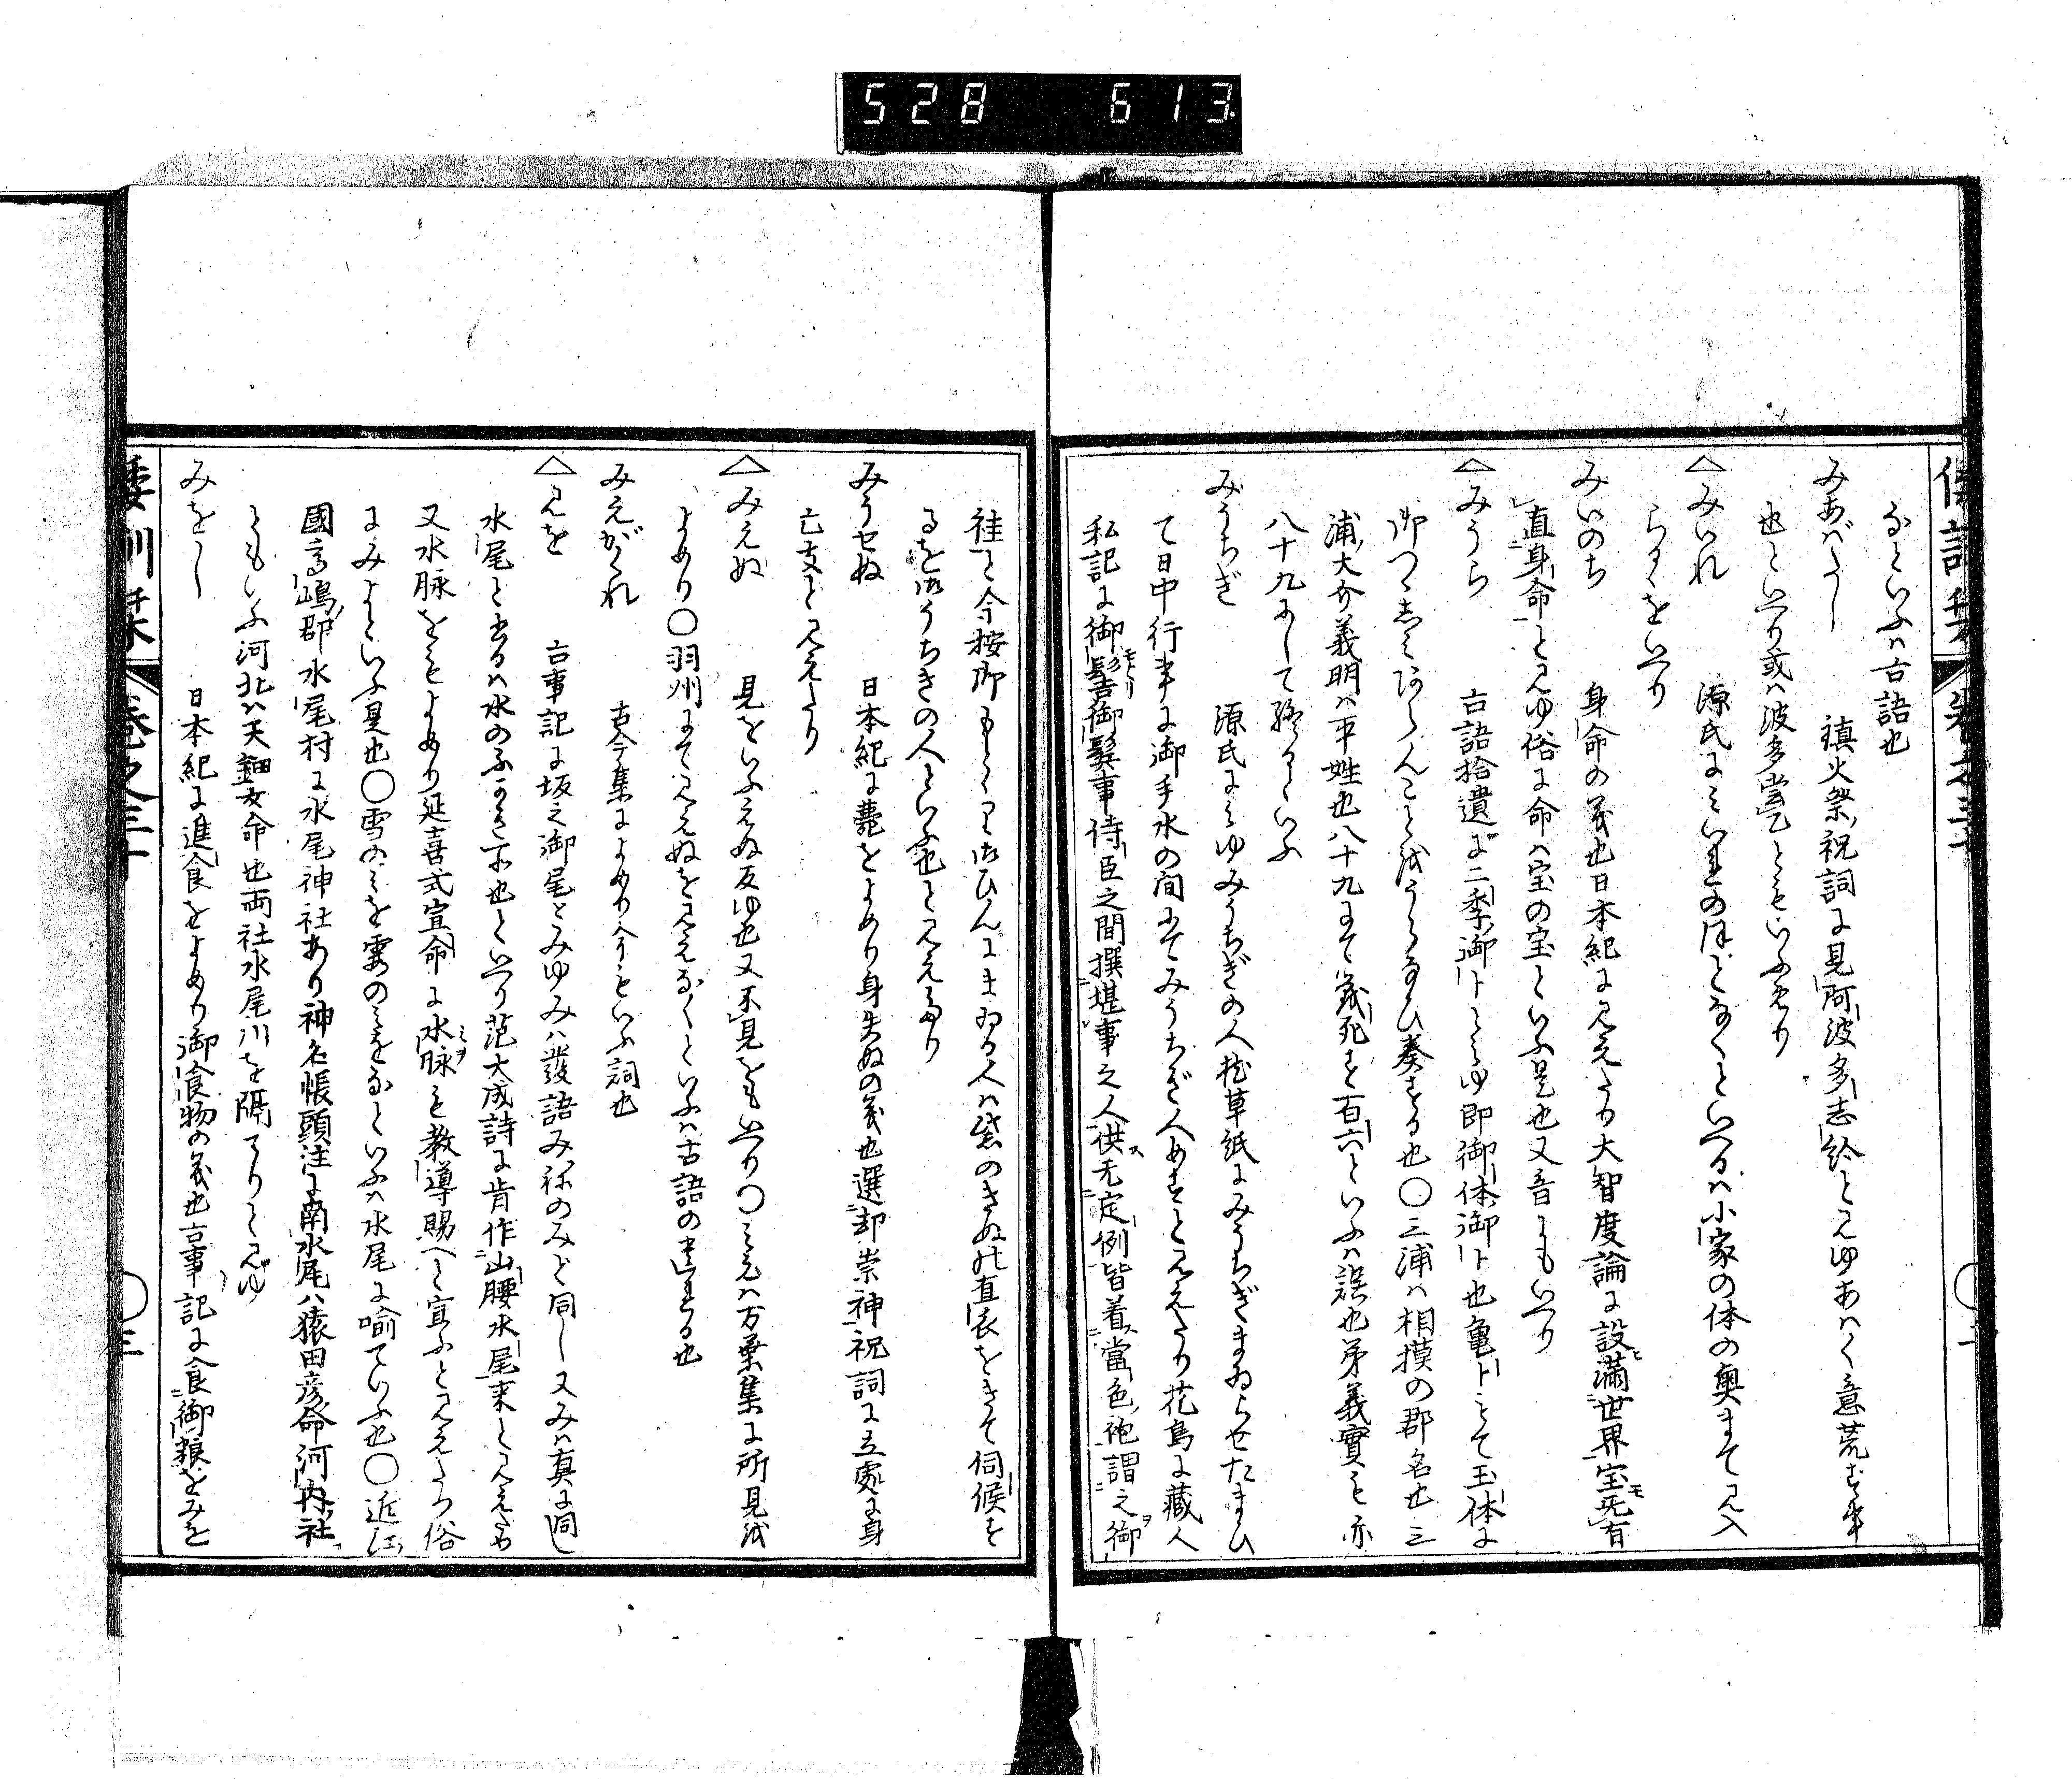 528 613
巻之三十
なといふハ古語也
みあばたし 鎮火祭祝詞に見阿波多志給とみゆあハく意荒す
也といへり或ハ波多 ともいふ
△みいれ 源氏にみいれのほどなくといへるハ小家の体の奥まて見入
らるゝをいへり
みいのち 身命の義也日本紀に見えたり大智度論に設満世界宝无有
直身命とみゆ俗に命ハ宝の宝といふ是也又音にもいへり
△みうら 古語拾遺に二季御卜とみゆ即御体御卜也亀卜にて玉体に
御つゝしみあらんことをうらなひ奏する也○三浦ハ相摸の郡名也三
浦大介義明ハ平姓也八十九にて義死す百六といふハ誤也弟義實も亦
八十九にして終るといふ
みうちぎ 源氏にみゆみうちぎの人枕草紙にみうちぎまゐらせたまひ
て日中行事に御手水の間にてみうちぎ人めすと見えたり花鳥に蔵人
私記に御髻御鬂事侍臣之間撰堪事之人供无定例皆着當色袍謂之御
袿と今按御 ひんにまゐる人ハ のきぬ 直衣をきて伺候を
るを御うちきの人といふ也と見えたり
みうせぬ 日本紀に薨をよめり身失ぬの義也遷却祟神祝詞に立處に身
亡支と見えたり
△みえぬ 見をいふえぬ反ゆ也又不見をもいへり○みえハ万葉集に所見を
よめり○羽州にて見えぬを見えなくといふハ古語の まる也
みえがくれ 古今集によめり今もいふ詞也
△みを 古事記に坂之御尾とみゆみハ發語み祢のみと同し又みハ真に同し
水尾と書るハ水のふかき所也といへり范大成詩に肯作山腰水尾来と見えたり
又水脉をもよめり延喜式宣命に水脉も教導賜へと宣ふと見えたり俗
にみよといふ是也○雪のみを雲のみをなといふハ水尾に喩ていふ也○近江
國高嶋郡水尾村に水尾神社あり神名帳頭注に南水尾ハ猿田彦命河内社
ともいふ河北ハ天鈿女命也両社水尾川を隔てりとみゆ
みをし 日本紀に進食をよめり御食物の義也古事記に食御粮をみを
倭訓栞 巻之三十 三